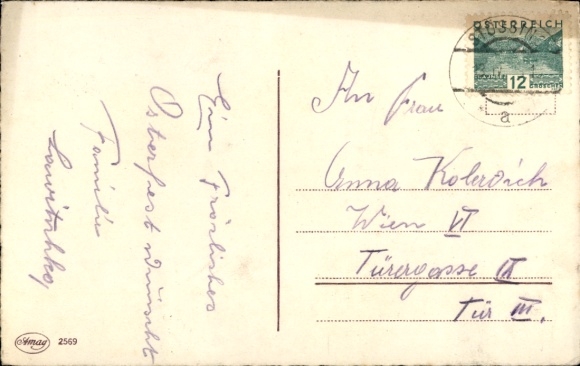 Ein Fröhliches
Osterfest wünscht
Familie
ÖSTERREICH
12
GROSCHEN
a
An Frau
Anna
Wien VI
Türergasse IX
Tür III.
Amag 2569